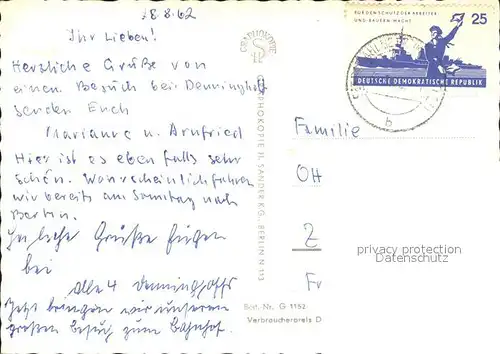 8.8.62
Ihr Lieben!
Herzliche Grüße von
einem Besuch bei Denninghoffs
senden Euch
Marianne u. Arnfried
Hier ist es eben falls sehr
schön. Wahrscheinlich fahren
wir bereits am Samstag nach
Berlin.
Herzliche Grüße fügen
bei
Alle 4 Denninghoffs
Jetzt bringen wir unseren
großen Besuch zum Bahnhof.
GRAPHOKOPIE H. SANDER KG., BERLIN N 113
FÜR DEN SCHUTZ DER ARBEITER
UND-BAUERN-MACHT
25
DEUTSCHE DEMOKRATISCHE REPUBLIK
b
Familie
OH
Z
Fr
privacy protection
Datenschutz
Best. Nr. G 1152
Verbraucherpreis D